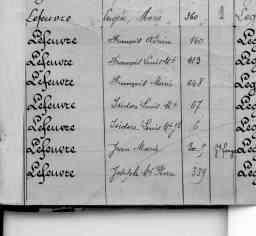 Lefeuvre Eugène Marie 360 2 Leg
Lefeuvre François 140 Leg
Lefeuvre François Louis Mie 413 Leg
Lefeuvre François Marie 248 Leg
Lefeuvre Isidore Louis Mie 67 Leg
Lefeuvre Isidore Louis 6 Leg
Lefeuvre Jean Marie Leg
Lefeuvre Joseph Pierre 339 Leg